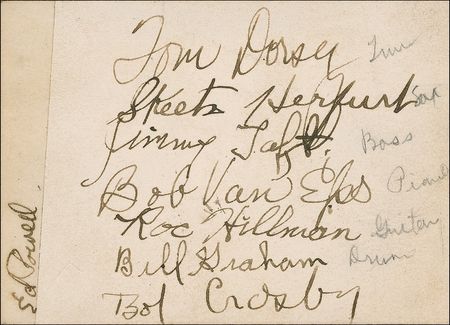 Tom Dorsey
Skeets Herfurt Sax
Jimmy Taft. Bass
Bob Van Eps Piano
Roc Hillman Guitar
Bill Graham Drum
Bob Crosby
Ed Powell